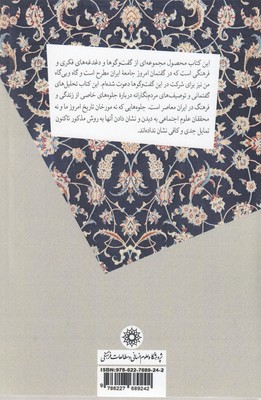 این کتاب محصول مجموعه‌ای از گفت‌وگوها و دغدغه‌های فکری و
فرهنگی است که در گفتمان امروز جامعهٔ ایران مطرح است و گاه وبی‌گاه
من نیز برای شرکت در این گفت‌وگوها دعوت شده‌ام. این کتاب تحلیل‌های
گفتمانی و توصیف‌های مردم‌نگارانه دربارهٔ جلوه‌های خاصی از زندگی و
فرهنگ در ایران معاصر است. جلوه‌هایی که نه مورخان تاریخ امروز ما و نه
محققان علوم اجتماعی به دیدن و نشان دادن آنها به روش مذکور تاکنون
تمایل جدی و کافی نشان نداده‌اند.
پژوهشگاه علوم انسانی و مطالعات فرهنگی
ISBN: 978-622-7689-24-2
9 786227 689242